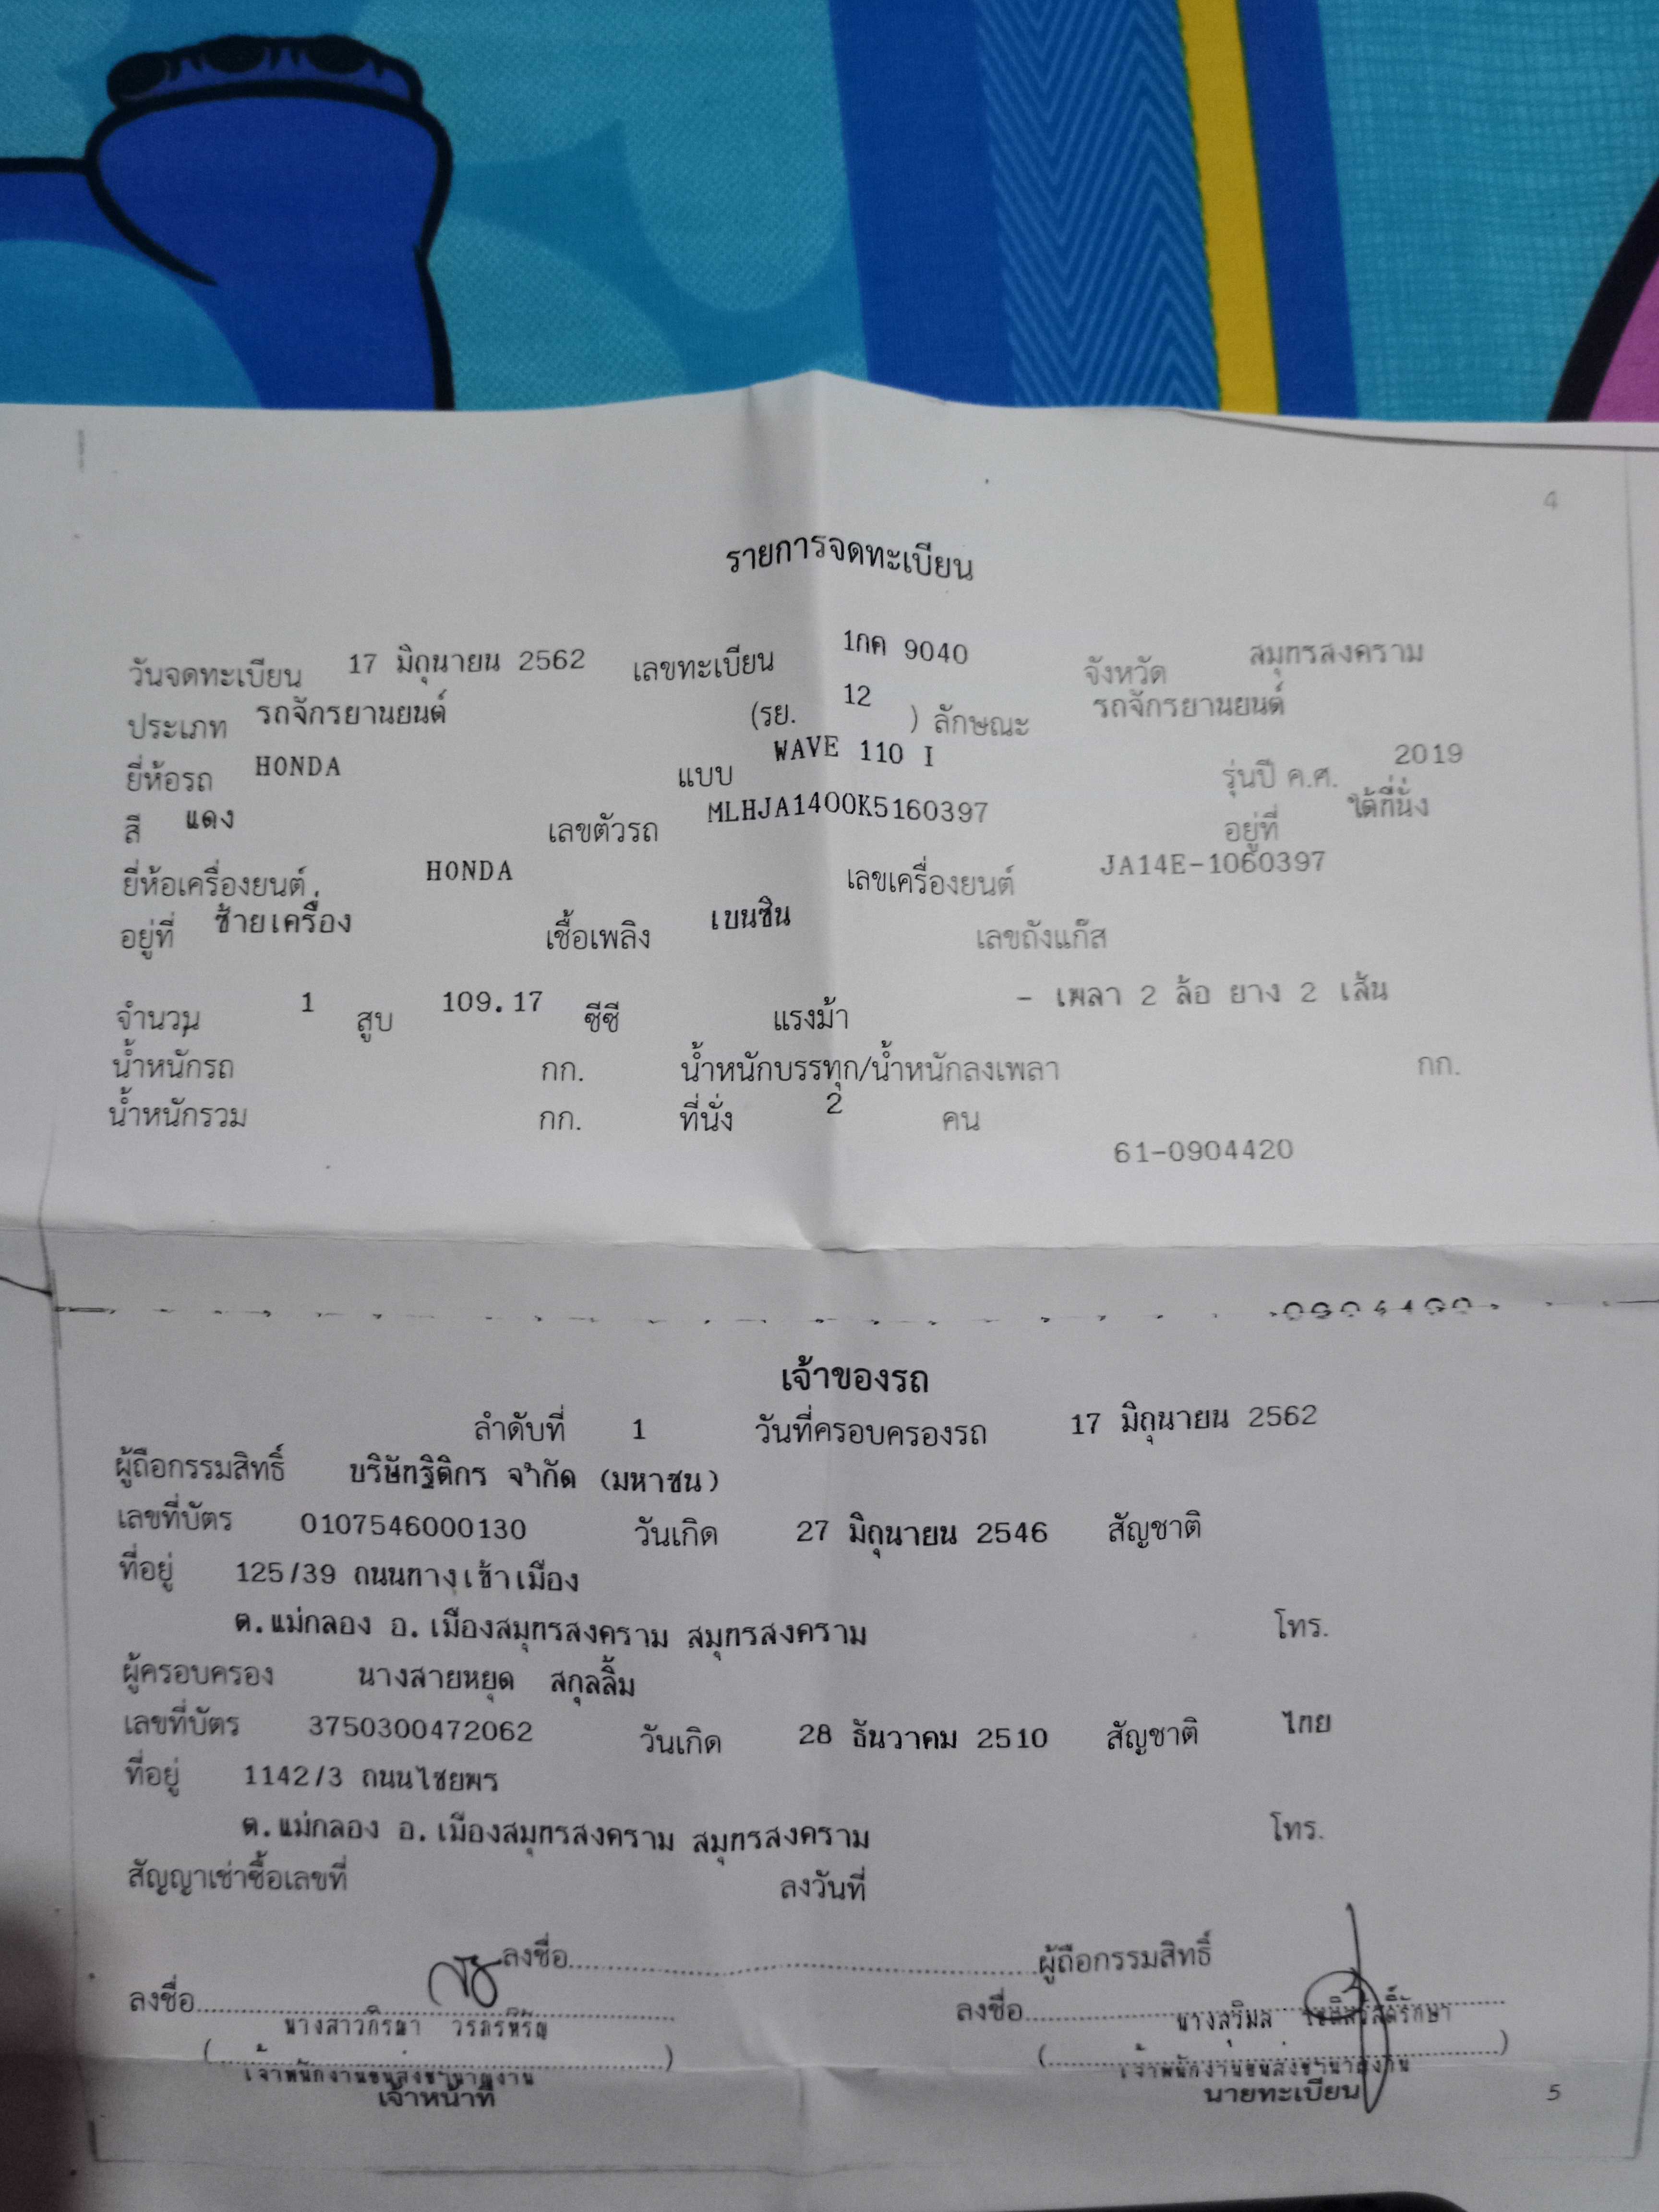 4
รายการจดทะเบียน
วันจดทะเบียน 17 มิถุนายน 2562 เลขทะเบียน 1กค 9040 จังหวัด สมุทรสงคราม
ประเภท รถจักรยานยนต์ (รย. 12 ) ลักษณะ รถจักรยานยนต์
ยี่ห้อรถ HONDA แบบ WAVE 110 I รุ่นปี ค.ศ. 2019
สี แดง เลขตัวรถ MLHJA1400K5160397 อยู่ที่ ใต้ที่นั่ง
ยี่ห้อเครื่องยนต์ HONDA เลขเครื่องยนต์ JA14E-1060397
อยู่ที่ ซ้ายเครื่อง เชื้อเพลิง เบนซิน เลขถังแก๊ส
จำนวน 1 สูบ 109.17 ซีซี แรงม้า - เพลา 2 ล้อ ยาง 2 เส้น
น้ำหนักรถ กก. น้ำหนักบรรทุก/น้ำหนักลงเพลา กก.
น้ำหนักรวม กก. ที่นั่ง 2 คน
61-0904420
เจ้าของรถ
ลำดับที่ 1 วันที่ครอบครองรถ 17 มิถุนายน 2562
ผู้ถือกรรมสิทธิ์ บริษัทฐิติกร จำกัด (มหาชน)
เลขที่บัตร 0107546000130 วันเกิด 27 มิถุนายน 2546 สัญชาติ
ที่อยู่ 125/39 ถนนทางเข้าเมือง
ต.แม่กลอง อ.เมืองสมุทรสงคราม สมุทรสงคราม โทร.
ผู้ครอบครอง นางสายหยุด สกุลลิ้ม
เลขที่บัตร 3750300472062 วันเกิด 28 ธันวาคม 2510 สัญชาติ ไทย
ที่อยู่ 1142/3 ถนนไชยพร
ต.แม่กลอง อ.เมืองสมุทรสงคราม สมุทรสงคราม โทร.
สัญญาเช่าซื้อเลขที่ ลงวันที่
ลงชื่อ ผู้ถือกรรมสิทธิ์
ลงชื่อ ลงชื่อ
นางสาวภิรฌา นางสุวิมล
เจ้าพนักงานขนส่งชำนาญงาน เจ้าพนักงานขนส่งชำนาญงาน
เจ้าหน้าที่ นายทะเบียน
5